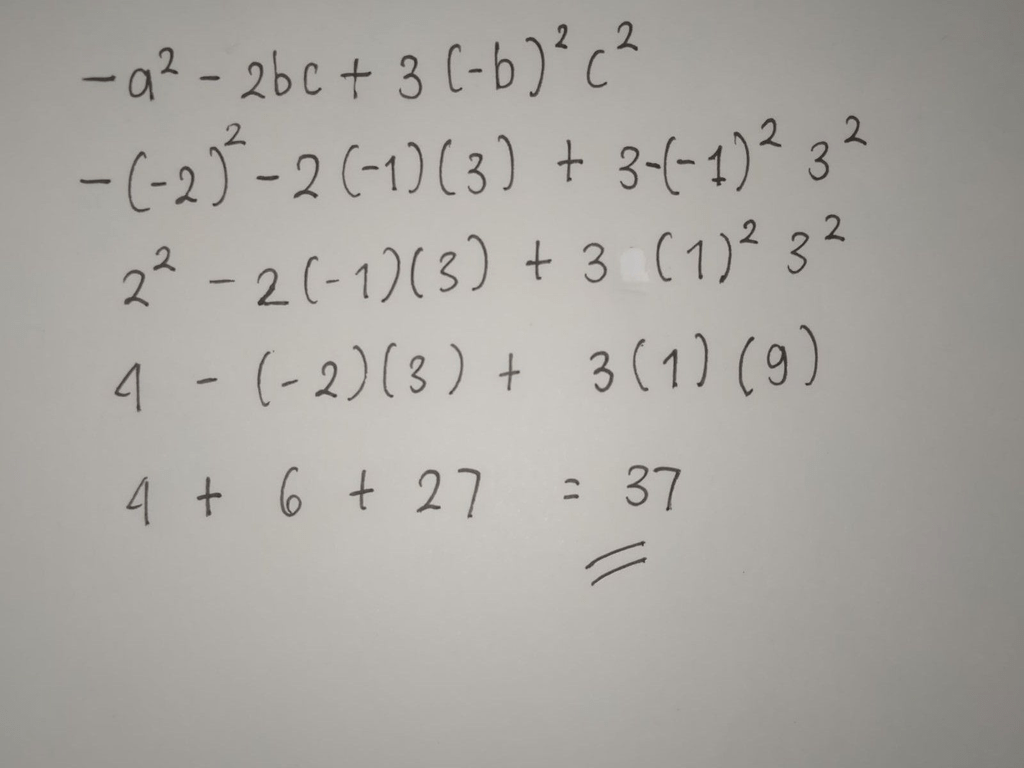 -a² - 2bc + 3 (-b)² c²
-(-2)² - 2 (-1)(3) + 3-(-1)² 3²
2² - 2(-1)(3) + 3 (1)² 3²
4 - (-2)(3) + 3(1)(9)
4 + 6 + 27 = 37